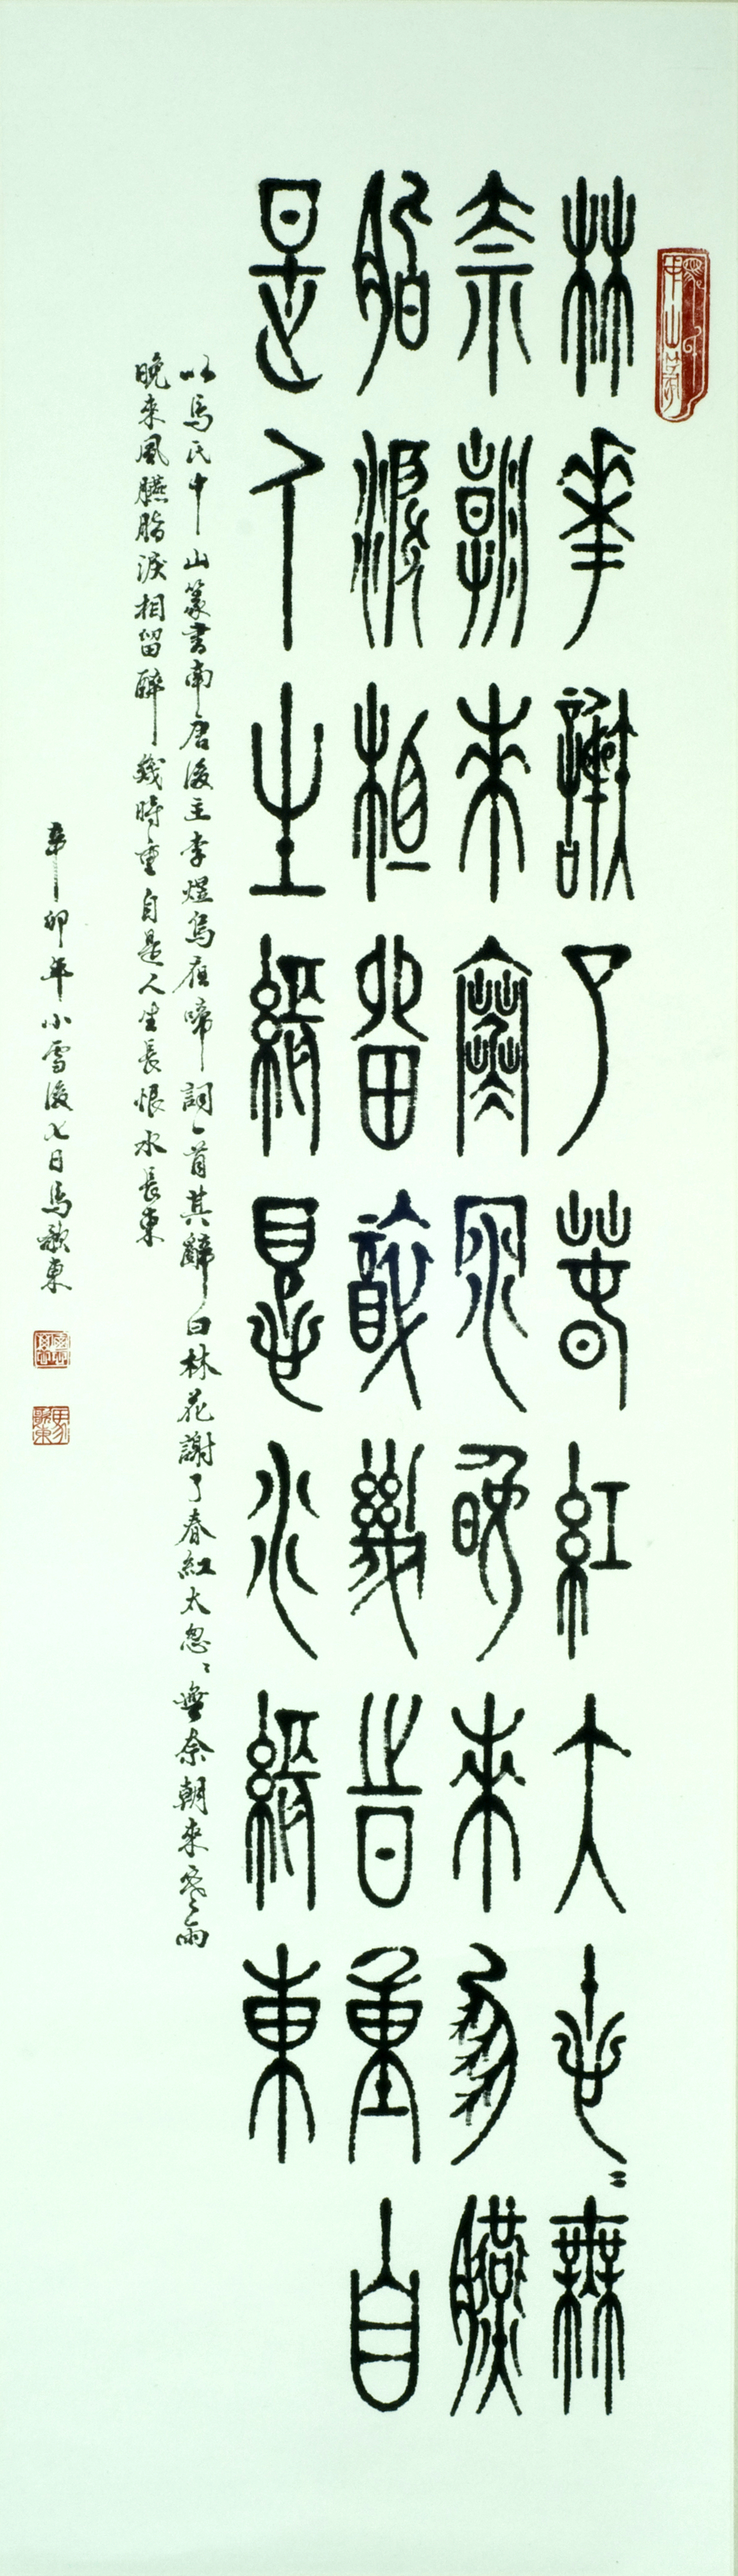 馬氏中山篆
林華謝了春紅大悤〻無
奈朝來寒雨晚來風臙
脂淚相留醉幾時重自
是人生長恨水長東
以馬氏中山篆書南唐後主李煜烏夜啼詞一首其辭曰林花謝了春紅太怱〻無奈朝來寒雨
晚來風臙脂淚相留醉幾時重自是人生長恨水長東
辛卯年小雪後七日馬歌東
馬歌東